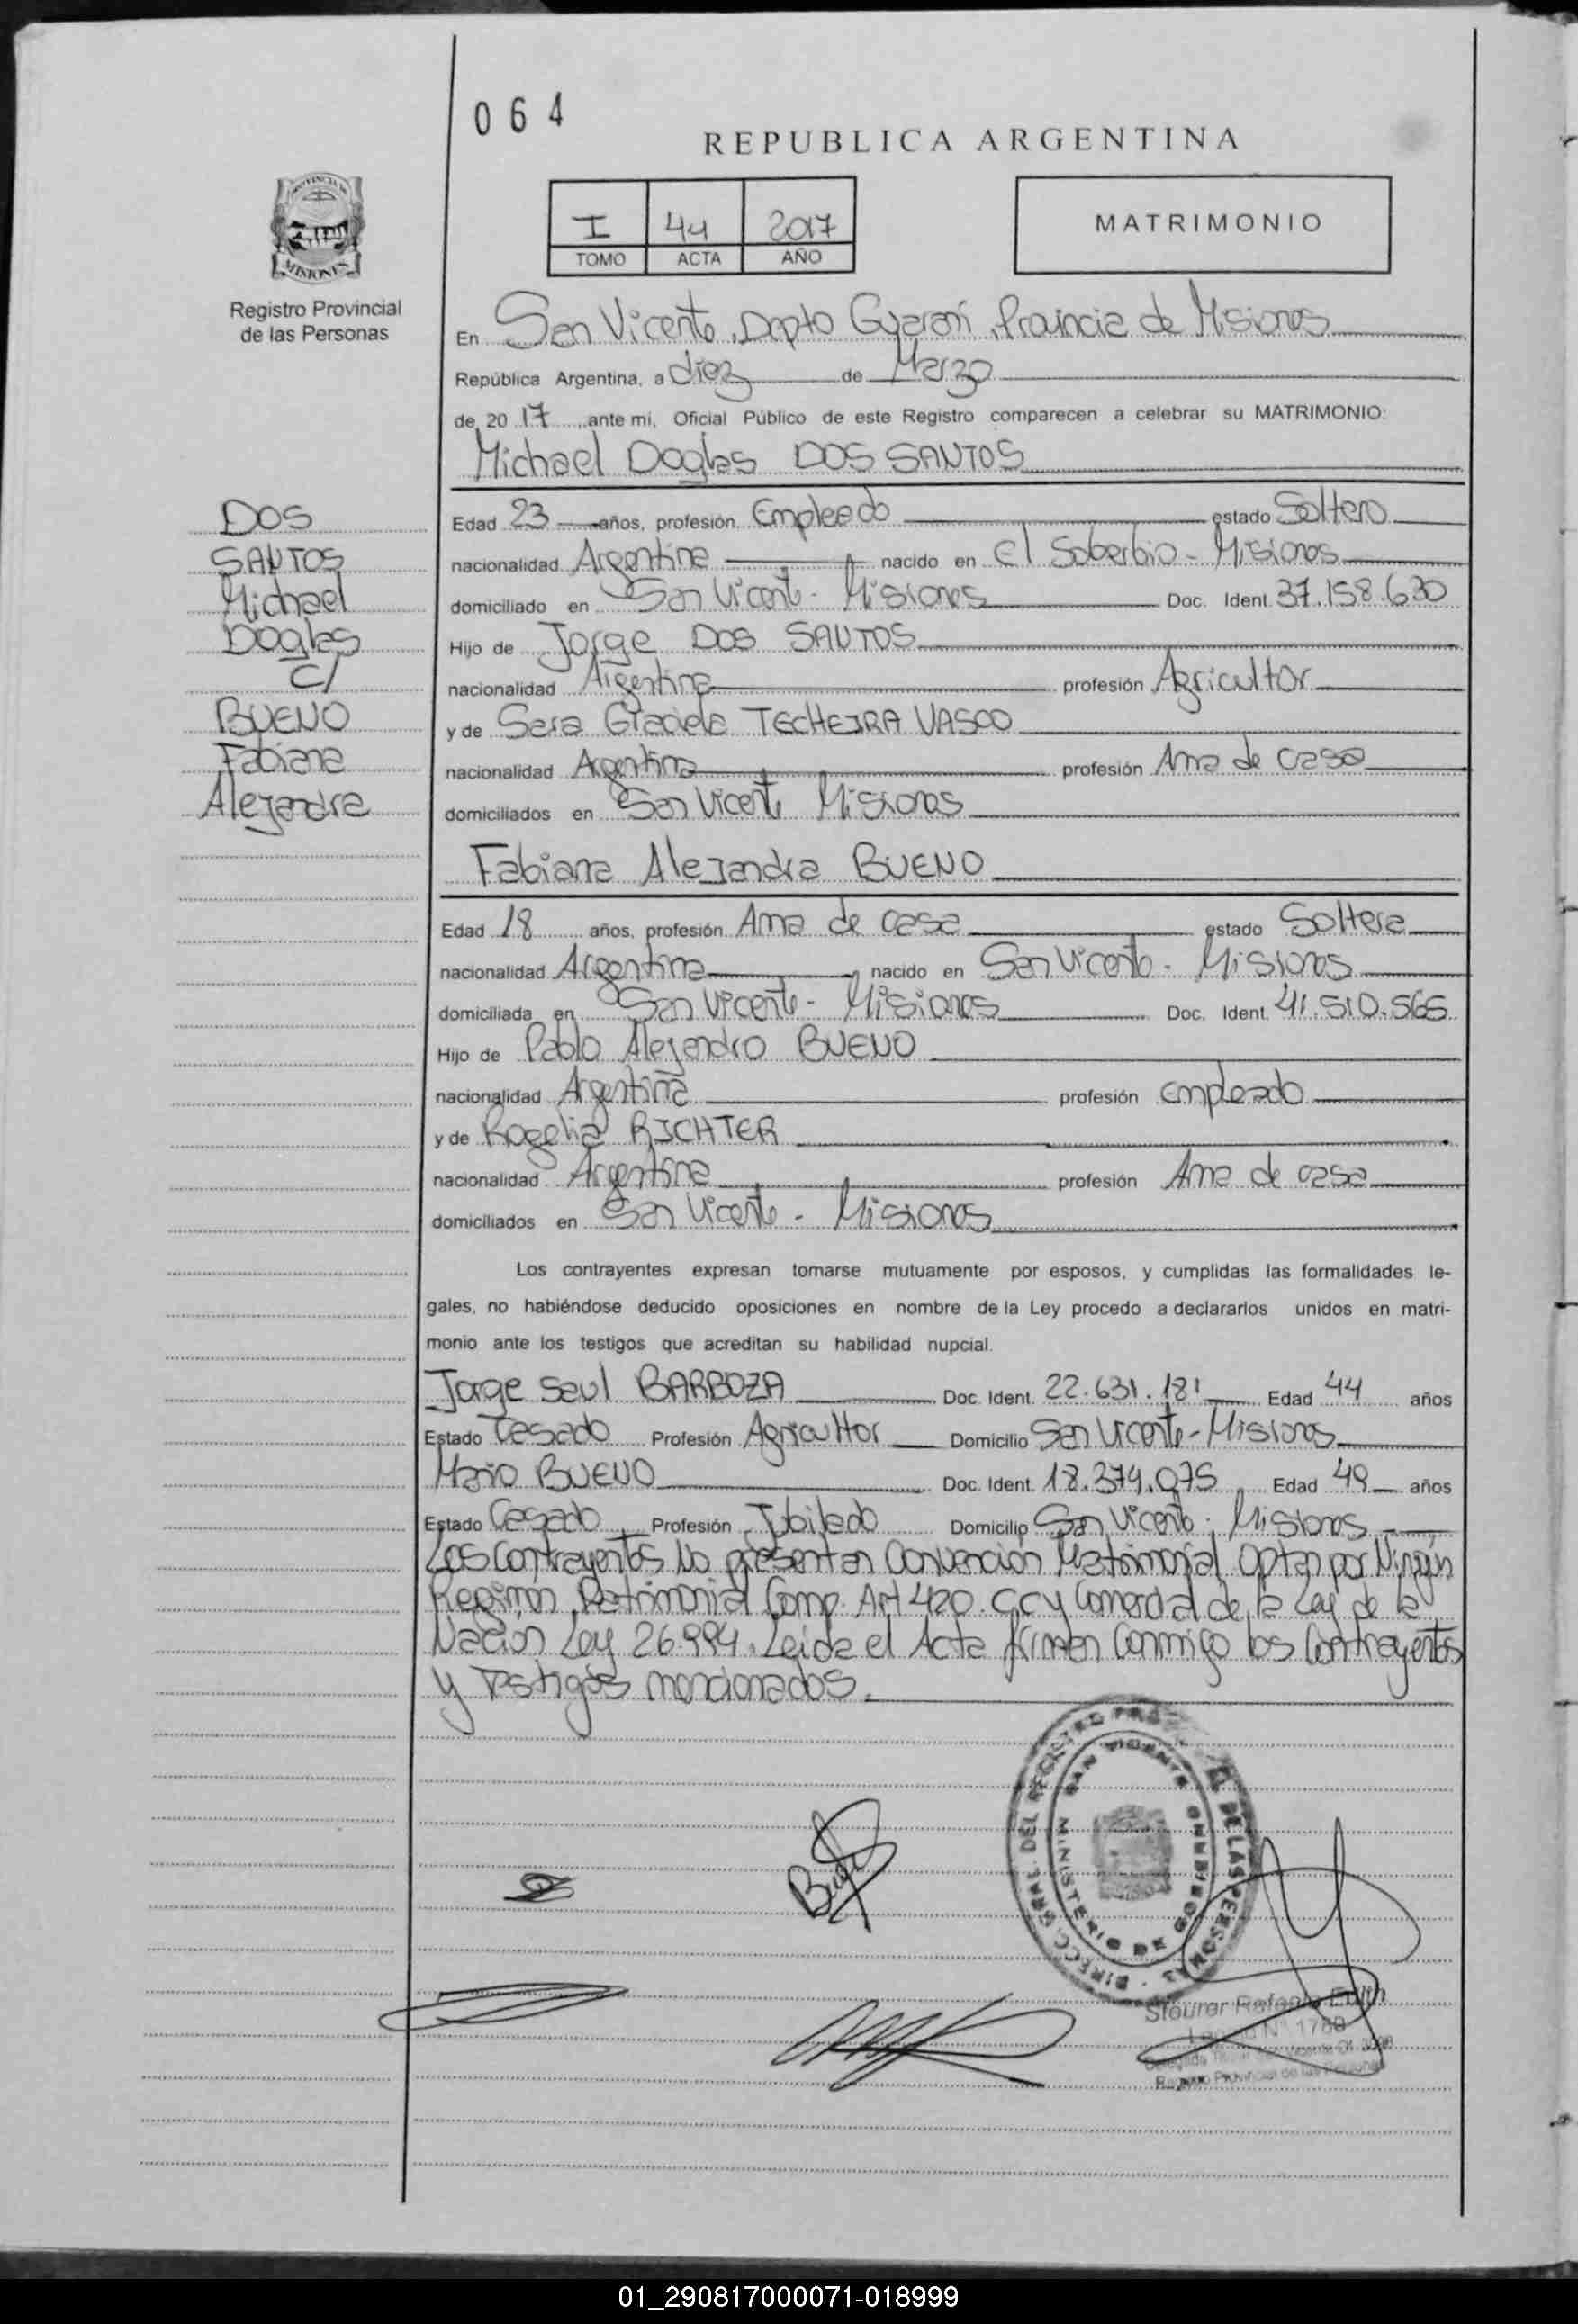 064
REPUBLICA ARGENTINA
I 44 2017
TOMO ACTA AÑO
MATRIMONIO
PROVINCIA DE
MISIONES
Registro Provincial
de las Personas
En San Vicente, Dpto Guaraní, Provincia de Misiones
República Argentina, a diez de Marzo
de 20 17 ante mi, Oficial Público de este Registro comparecen a celebrar su MATRIMONIO:
Michael Doglas DOS SANTOS
DOS
SANTOS
Michael
Doglas
C/
BUENO
Fabiana
Alejandra
Edad 23 años, profesión Empleado estado Soltero
nacionalidad Argentina nacido en El Soberbio - Misiones
domiciliado en San Vicente - Misiones Doc. Ident. 37.158.630
Hijo de Jorge DOS SANTOS
nacionalidad Argentina profesión Agricultor
y de Sara Graciela TECHEIRA VASCO
nacionalidad Argentina profesión Ama de casa
domiciliados en San Vicente Misiones
Fabiana Alejandra BUENO
Edad 18 años, profesión Ama de casa estado Soltera
nacionalidad Argentina nacido en San Vicente - Misiones
domiciliada en San Vicente - Misiones Doc. Ident. 41.510.565
Hijo de Pablo Alejandro BUENO
nacionalidad Argentina profesión Empleado
y de Rogelia RICHTER
nacionalidad Argentina profesión Ama de casa
domiciliados en San Vicente - Misiones
Los contrayentes expresan tomarse mutuamente por esposos, y cumplidas las formalidades le-
gales, no habiéndose deducido oposiciones en nombre de la Ley procedo a declararlos unidos en matri-
monio ante los testigos que acreditan su habilidad nupcial.
Jorge Saul BARBOZA Doc. Ident. 22.631.181 Edad 44 años
Estado Casado Profesión Agricultor Domicilio San Vicente - Misiones
Mario BUENO Doc. Ident. 18.374.075 Edad 49 años
Estado Casado Profesión Jubilado Domicilio San Vicente - Misiones
Los Contrayentes No presentan Convención Matrimonial Optan por Ningún
Regimen Patrimonial Comp. Art 420. CC y Comercial de la Ley de la
Nación Ley 26.994. Leida el Acta firman Conmigo los Contrayentes
y Testigos mencionados.
DIRECC. GRAL. DEL REGISTRO DE LAS PERSONAS
MINISTERIO DE GOBIERNO SAN VICENTE
Edith
Nº 1788
Registro Provincial de las Personas
01_290817000071-018999